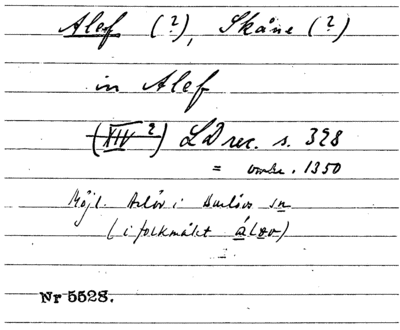 Alef (?), Skåne (?)
in Alef
(XIV 2) LD rec. s. 328
= omkr. 1350
Möjl. Arlöv i Burlövs sn
(i folkmålet áløv)
Nr 5528.